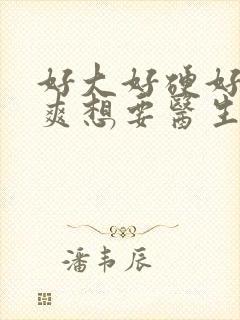 好大好硬好
爽想要医生
潘韦辰